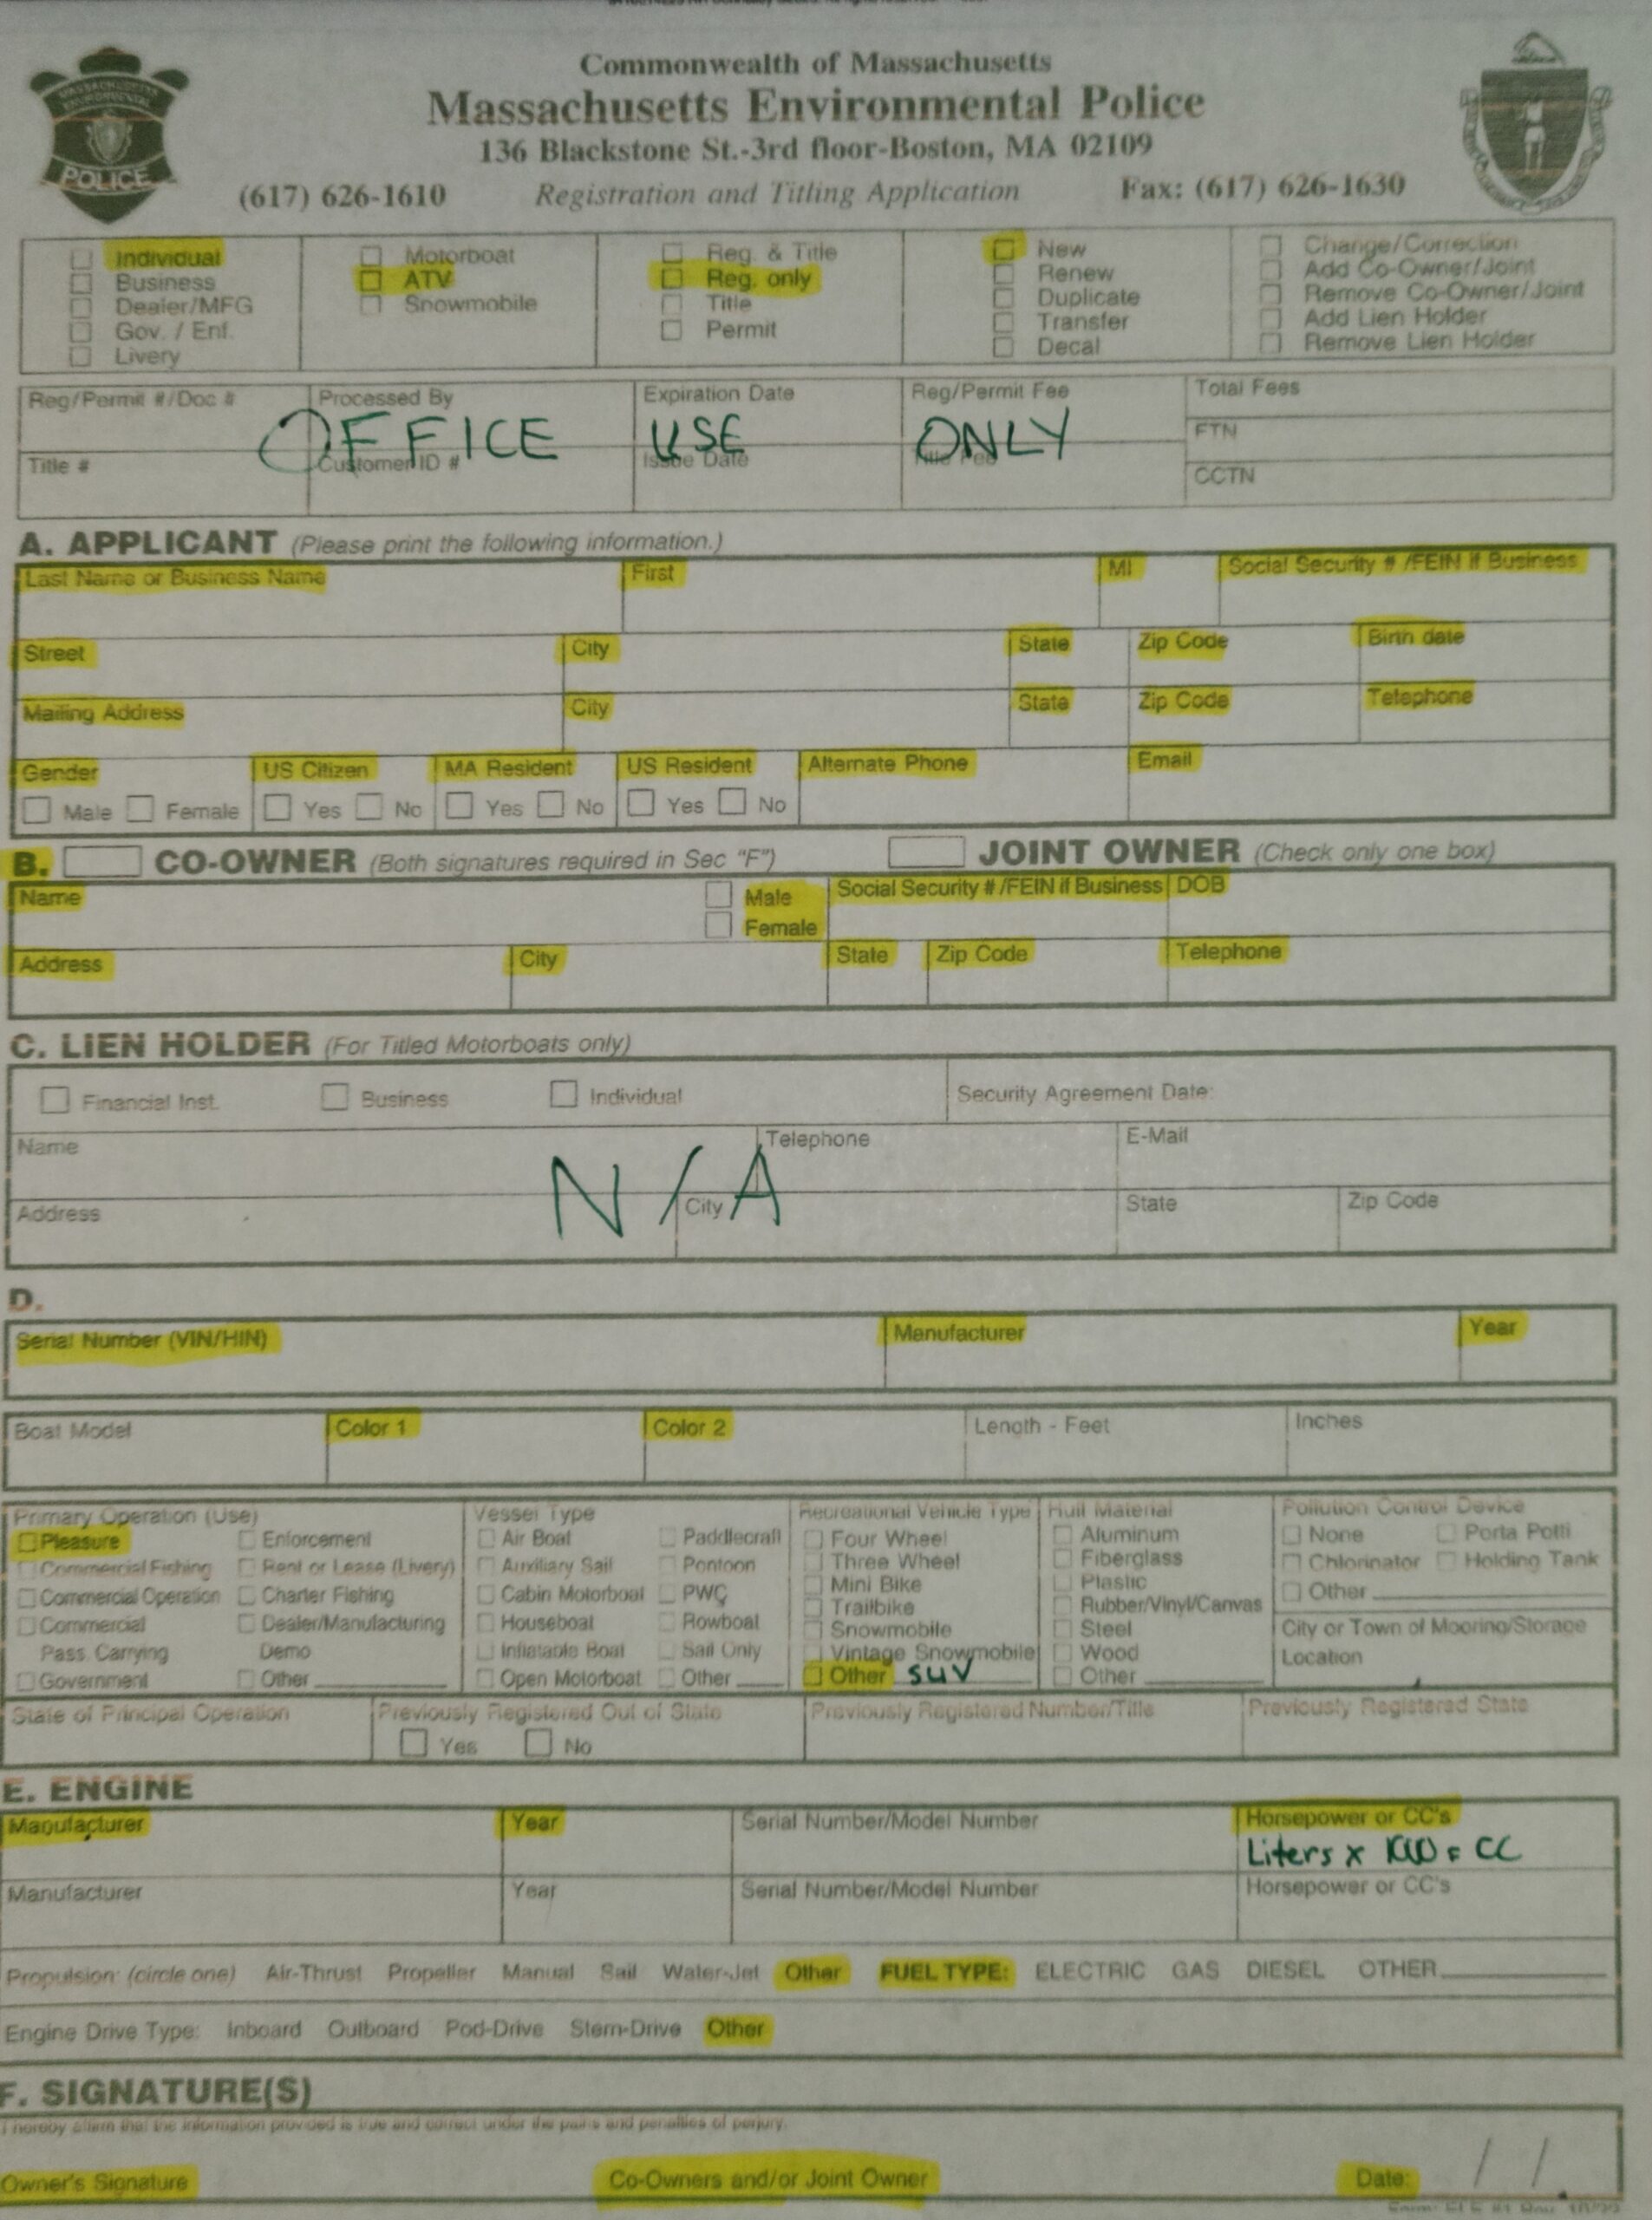 Commonwealth of Massachusetts
Massachusetts Environmental Police
136 Blackstone St.-3rd floor-Boston, MA 02109
(617) 626-1610 Registration and Titling Application Fax: (617) 626-1630
POLICE
Individual Motorboat Reg. & Title New Change/Correction
Business ATV Reg. only Renew Add Co-Owner/Joint
Dealer/MFG Snowmobile Title Duplicate Remove Co-Owner/Joint
Gov. / Enf. Permit Transfer Add Lien Holder
Livery Decal Remove Lien Holder
Reg/Permit #/Doc # Processed By Expiration Date Reg/Permit Fee Total Fees
OFFICE USE ONLY FTN
Title # Customer ID # Issue Date Title Fee CCTN
A. APPLICANT (Please print the following information.)
Last Name or Business Name First MI Social Security # /FEIN if Business
Street City State Zip Code Birth date
Mailing Address City State Zip Code Telephone
Gender US Citizen MA Resident US Resident Alternate Phone Email
Male Female Yes No Yes No Yes No
B. CO-OWNER (Both signatures required in Sec "F") JOINT OWNER (Check only one box)
Name Male Social Security # /FEIN if Business DOB
Female
Address City State Zip Code Telephone
C. LIEN HOLDER (For Titled Motorboats only)
Financial Inst. Business Individual Security Agreement Date:
Name Telephone E-Mail
N/A
Address City State Zip Code
D.
Serial Number (VIN/HIN) Manufacturer Year
Boat Model Color 1 Color 2 Length - Feet Inches
Primary Operation (Use) Vessel Type Recreational Vehicle Type Hull Material Pollution Control Device
Pleasure Enforcement Air Boat Paddlecraft Four Wheel Aluminum None Porta Potti
Commercial Fishing Rent or Lease (Livery) Auxiliary Sail Pontoon Three Wheel Fiberglass Chlorinator Holding Tank
Commercial Operation Charter Fishing Cabin Motorboat PWC Mini Bike Plastic Other
Commercial Dealer/Manufacturing Houseboat Rowboat Trailbike Rubber/Vinyl/Canvas
Pass. Carrying Demo Inflatable Boat Sail Only Snowmobile Steel City or Town of Mooring/Storage
Vintage Snowmobile Wood Location
Government Other Open Motorboat Other Other SUV Other
State of Principal Operation Previously Registered Out of State Previously Registered Number/Title Previously Registered State
Yes No
E. ENGINE
Manufacturer Year Serial Number/Model Number Horsepower or CC's
Liters x 1000 = CC
Manufacturer Year Serial Number/Model Number Horsepower or CC's
Propulsion: (circle one) Air-Thrust Propeller Manual Sail Water-Jet Other FUEL TYPE: ELECTRIC GAS DIESEL OTHER
Engine Drive Type: Inboard Outboard Pod-Drive Stern-Drive Other
F. SIGNATURE(S)
I hereby affirm that the information provided is true and correct under the pains and penalties of perjury.
Owner's Signature Co-Owners and/or Joint Owner Date: / /